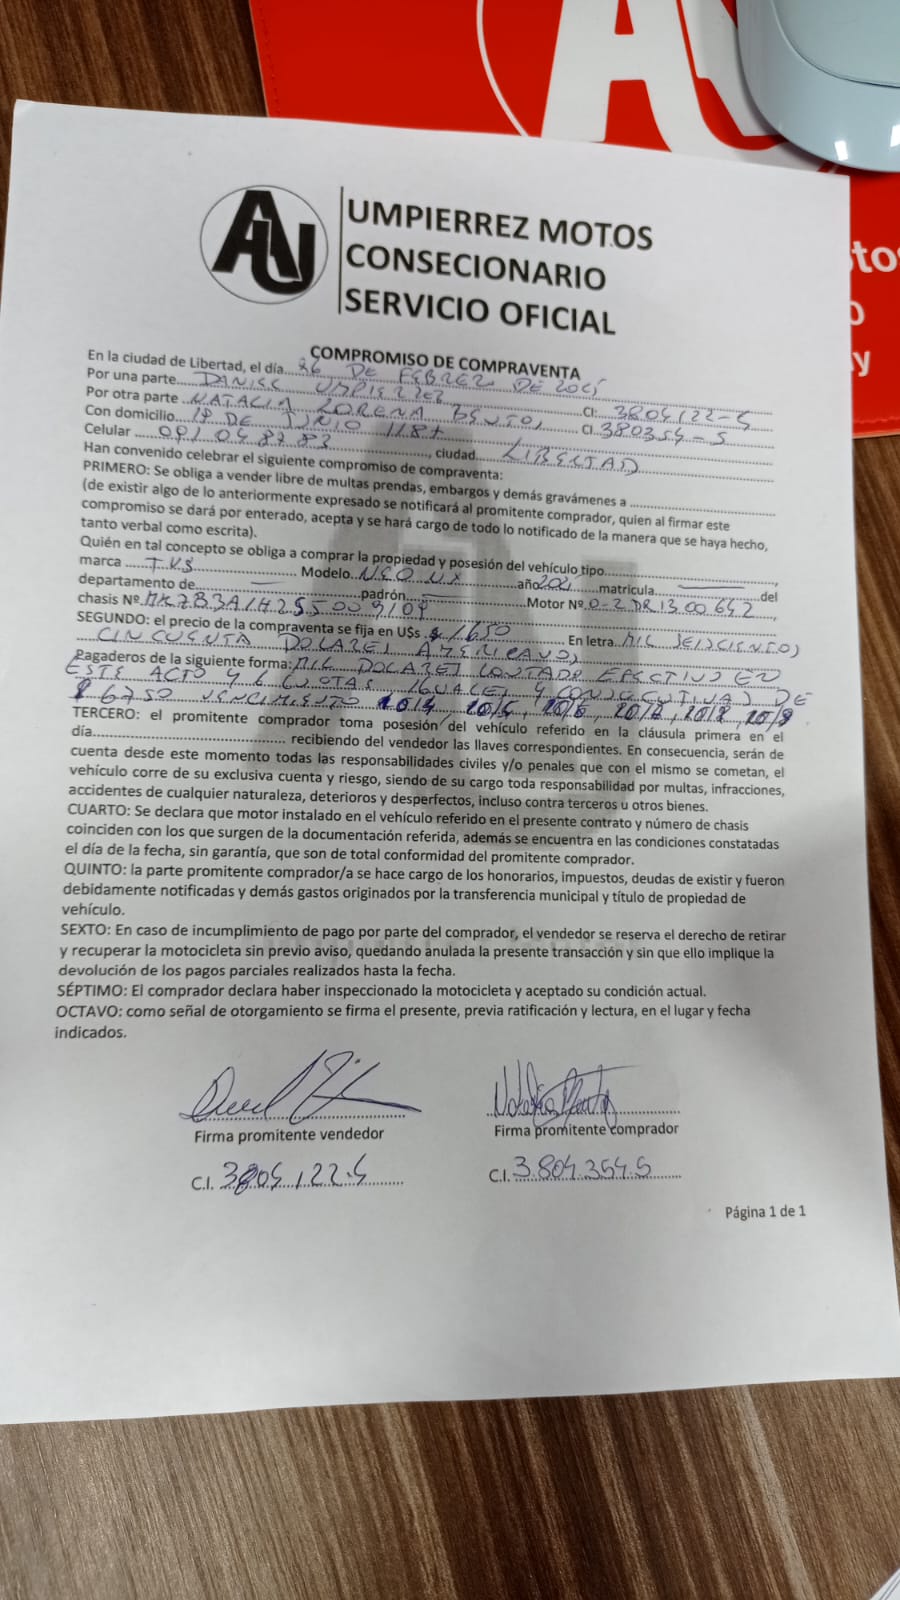 AU
UMPIERREZ MOTOS
CONSECIONARIO
SERVICIO OFICIAL
COMPROMISO DE COMPRAVENTA
En la ciudad de Libertad, el día 26 DE FEBRERO DE
Por una parte UMPIERREZ CI: 3804122-5
Por otra parte NATALIA LORENA CI. 380354-5
Con domicilio 18 DE JUNIO 1187
Celular 091 04 82 83, ciudad LIBERTAD
Han convenido celebrar el siguiente compromiso de compraventa:
PRIMERO: Se obliga a vender libre de multas prendas, embargos y demás gravámenes a
(de existir algo de lo anteriormente expresado se notificará al promitente comprador, quien al firmar este
compromiso se dará por enterado, acepta y se hará cargo de todo lo notificado de la manera que se haya hecho,
tanto verbal como escrita).
Quién en tal concepto se obliga a comprar la propiedad y posesión del vehículo tipo,
marca TVS Modelo NEO NX año matricula — del
departamento de — padrón — Motor Nº
chasis Nº
SEGUNDO: el precio de la compraventa se fija en U$s $ 1650 En letra MIL SEISCIENTOS
CINCUENTA DOLARES AMERICANOS
Pagaderos de la siguiente forma: MIL DOLARES CONTADO EFECTIVO EN
ESTE ACTO Y 6 CUOTAS IGUALES Y CONSECUTIVAS DE
$ 6750 VENCIMIENTO 10/4, 10/5, 10/6,
TERCERO: el promitente comprador toma posesión del vehículo referido en la cláusula primera en el
día recibiendo del vendedor las llaves correspondientes. En consecuencia, serán de
cuenta desde este momento todas las responsabilidades civiles y/o penales que con el mismo se cometan, el
vehículo corre de su exclusiva cuenta y riesgo, siendo de su cargo toda responsabilidad por multas, infracciones,
accidentes de cualquier naturaleza, deterioros y desperfectos, incluso contra terceros u otros bienes.
CUARTO: Se declara que motor instalado en el vehículo referido en el presente contrato y número de chasis
coinciden con los que surgen de la documentación referida, además se encuentra en las condiciones constatadas
el día de la fecha, sin garantía, que son de total conformidad del promitente comprador.
QUINTO: la parte promitente comprador/a se hace cargo de los honorarios, impuestos, deudas de existir y fueron
debidamente notificadas y demás gastos originados por la transferencia municipal y título de propiedad de
vehículo.
SEXTO: En caso de incumplimiento de pago por parte del comprador, el vendedor se reserva el derecho de retirar
y recuperar la motocicleta sin previo aviso, quedando anulada la presente transacción y sin que ello implique la
devolución de los pagos parciales realizados hasta la fecha.
SÉPTIMO: El comprador declara haber inspeccionado la motocicleta y aceptado su condición actual.
OCTAVO: como señal de otorgamiento se firma el presente, previa ratificación y lectura, en el lugar y fecha
indicados.
Firma promitente vendedor
Firma promitente comprador
C.I.
C.I. 3.804.354.5
Página 1 de 1